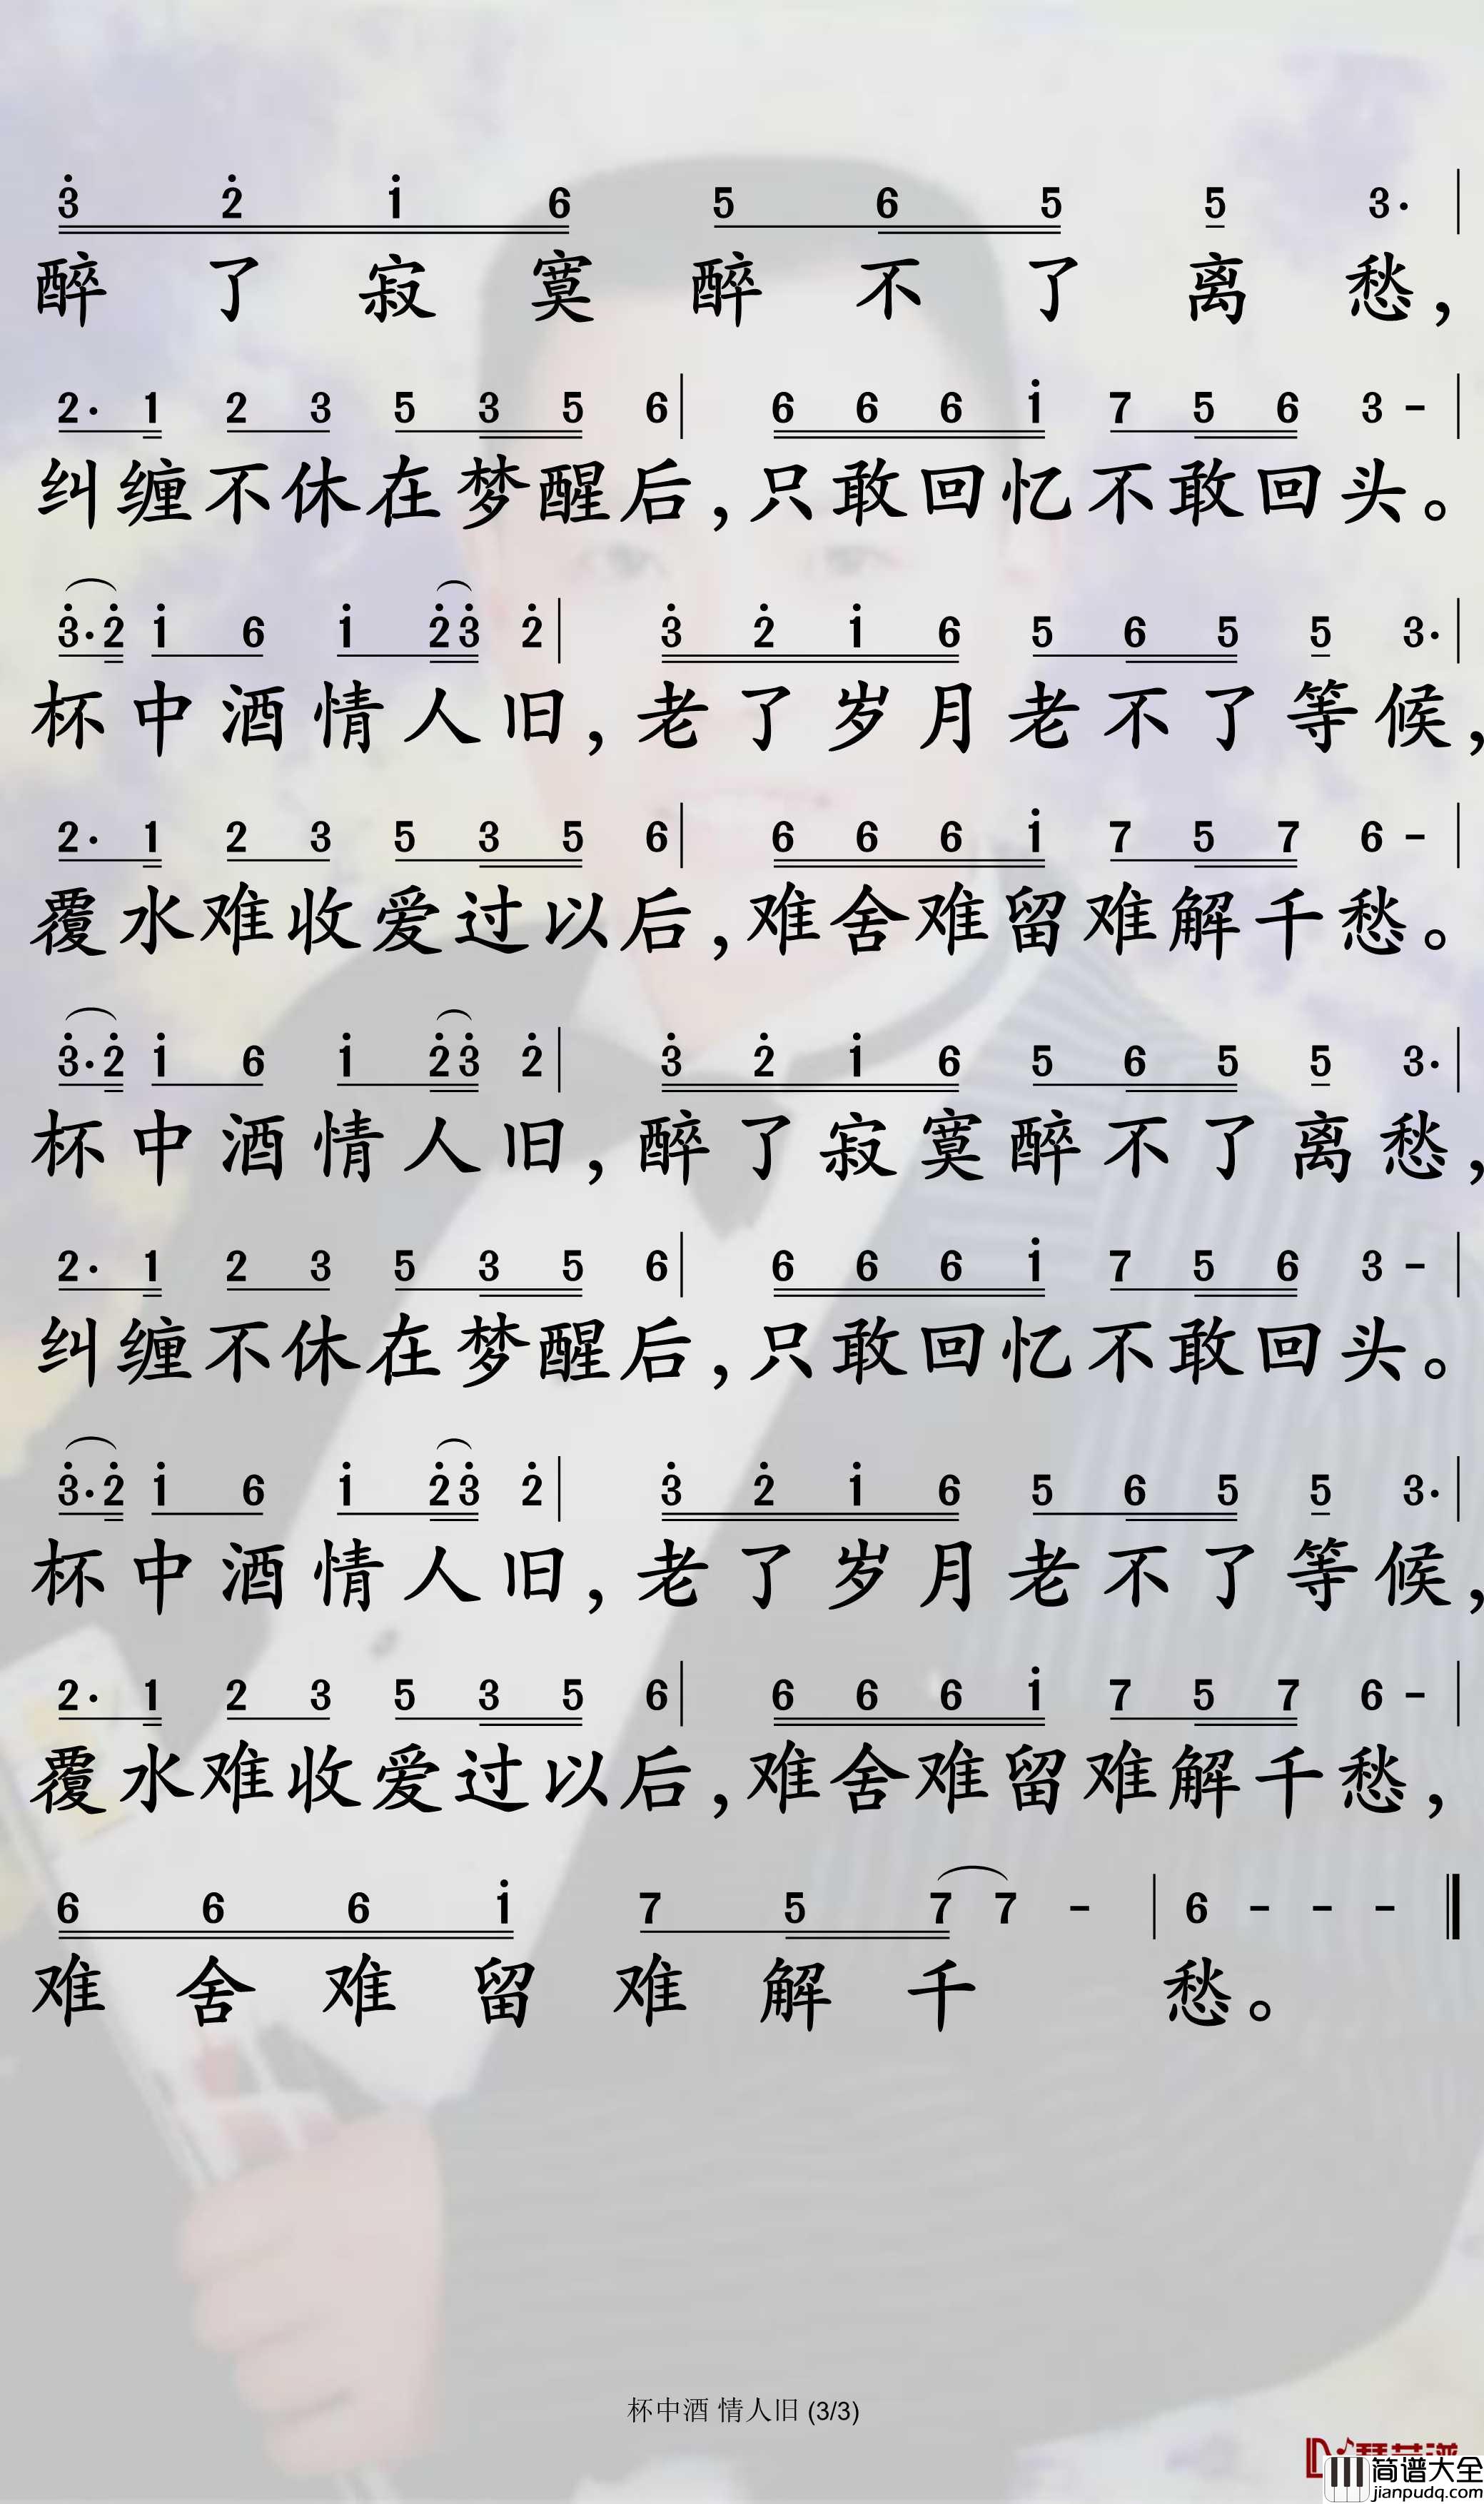 3̇ 2̇ 1̇ 6 5 6 5 5 3· |
醉了寂寞醉不了离愁，
2· 1 2 3 5 3 5 6 | 6 6 6 1̇ 7 5 6 3 - |
纠缠不休在梦醒后，只敢回忆不敢回头。
3̇·2̇ 1̇ 6 1̇ 2̇3̇ 2̇ | 3̇ 2̇ 1̇ 6 5 6 5 5 3· |
杯中酒情人旧，老了岁月老不了等候，
2· 1 2 3 5 3 5 6 | 6 6 6 1̇ 7 5 7 6 - |
覆水难收爱过以后，难舍难留难解千愁。
3̇·2̇ 1̇ 6 1̇ 2̇3̇ 2̇ | 3̇ 2̇ 1̇ 6 5 6 5 5 3· |
杯中酒情人旧，醉了寂寞醉不了离愁，
2· 1 2 3 5 3 5 6 | 6 6 6 1̇ 7 5 6 3 - |
纠缠不休在梦醒后，只敢回忆不敢回头。
3̇·2̇ 1̇ 6 1̇ 2̇3̇ 2̇ | 3̇ 2̇ 1̇ 6 5 6 5 5 3· |
杯中酒情人旧，老了岁月老不了等候，
2· 1 2 3 5 3 5 6 | 6 6 6 1̇ 7 5 7 6 - |
覆水难收爱过以后，难舍难留难解千愁，
6 6 6 1̇ 7 5 7 7 - | 6 - - - ‖
难舍难留难解千愁。
杯中酒 情人旧 (3/3)
简谱大全
jianpudq.com